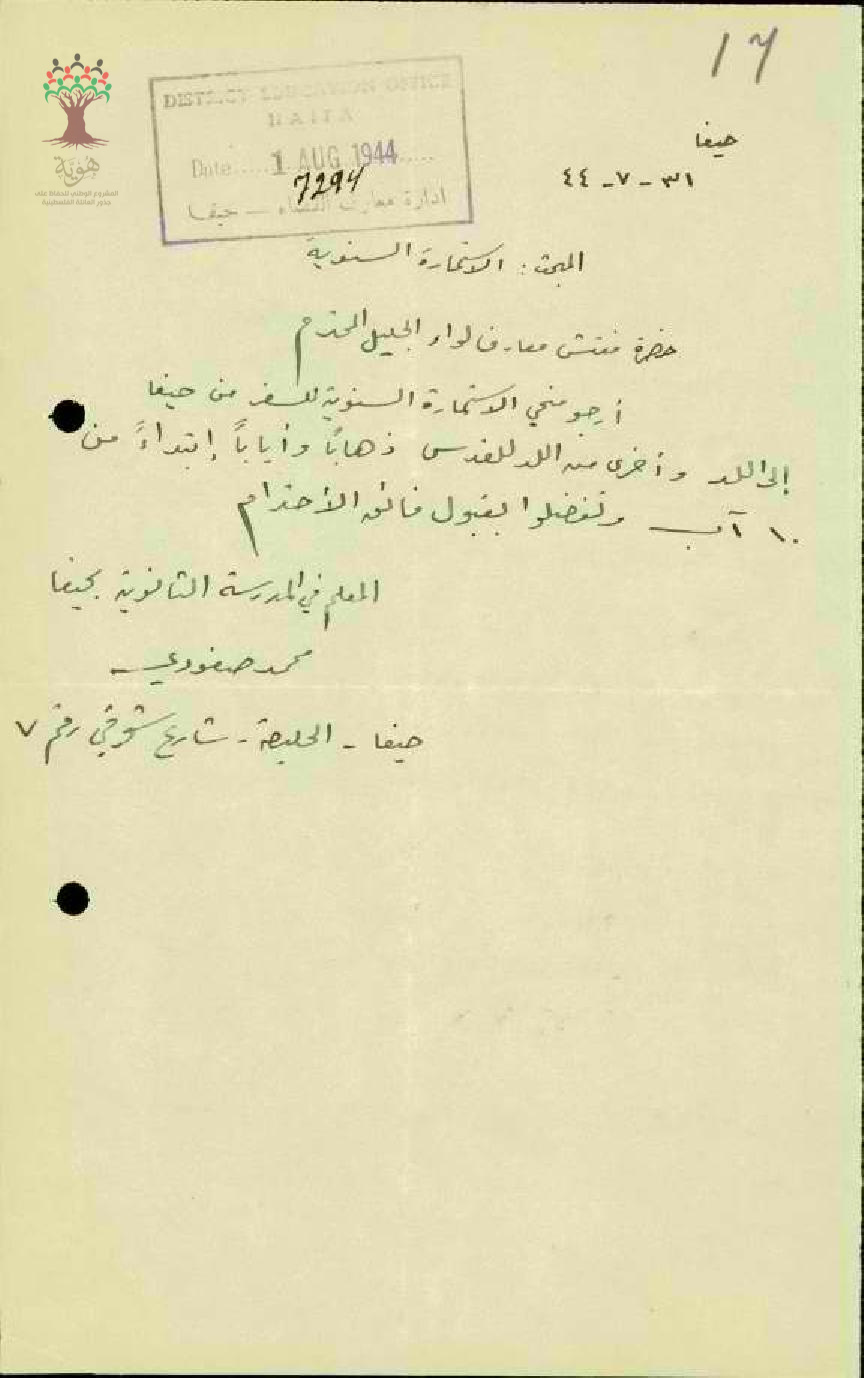 17
DISTRICT EDUCATION OFFICE
HAIFA
Date 1 AUG 1944
7294
ادارة معارف القضاء — حيفا
هوية
المشروع الوطني للحفاظ على
جذور العائلة الفلسطينية
حيفا
٣١ - ٧ - ٤٤
المبحث : الاستمارة السنوية
حضرة مفتش معارف لواء الجليل المحترم
أرجو منحي الاستمارة السنوية للسفر من حيفا
إلى اللد وأخرى من اللد للقدس ذهاباً وأياباً إبتداءً من
١٠ آب وتفضلوا بقبول فائق الأحترام
المعلم في المدرسة الثانوية بحيفا
محمد صفوري
حيفا - الحليصة - شارع شوقي رقم ٧